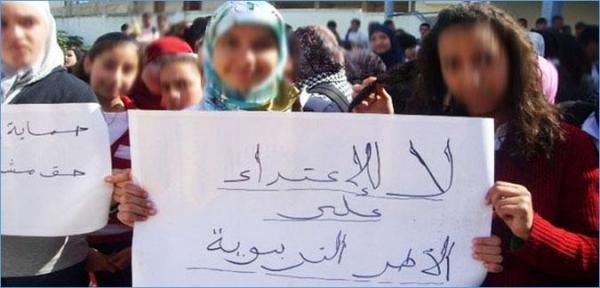 حماية
حق مش
لا للإعتداء
على
الأطر التربوية